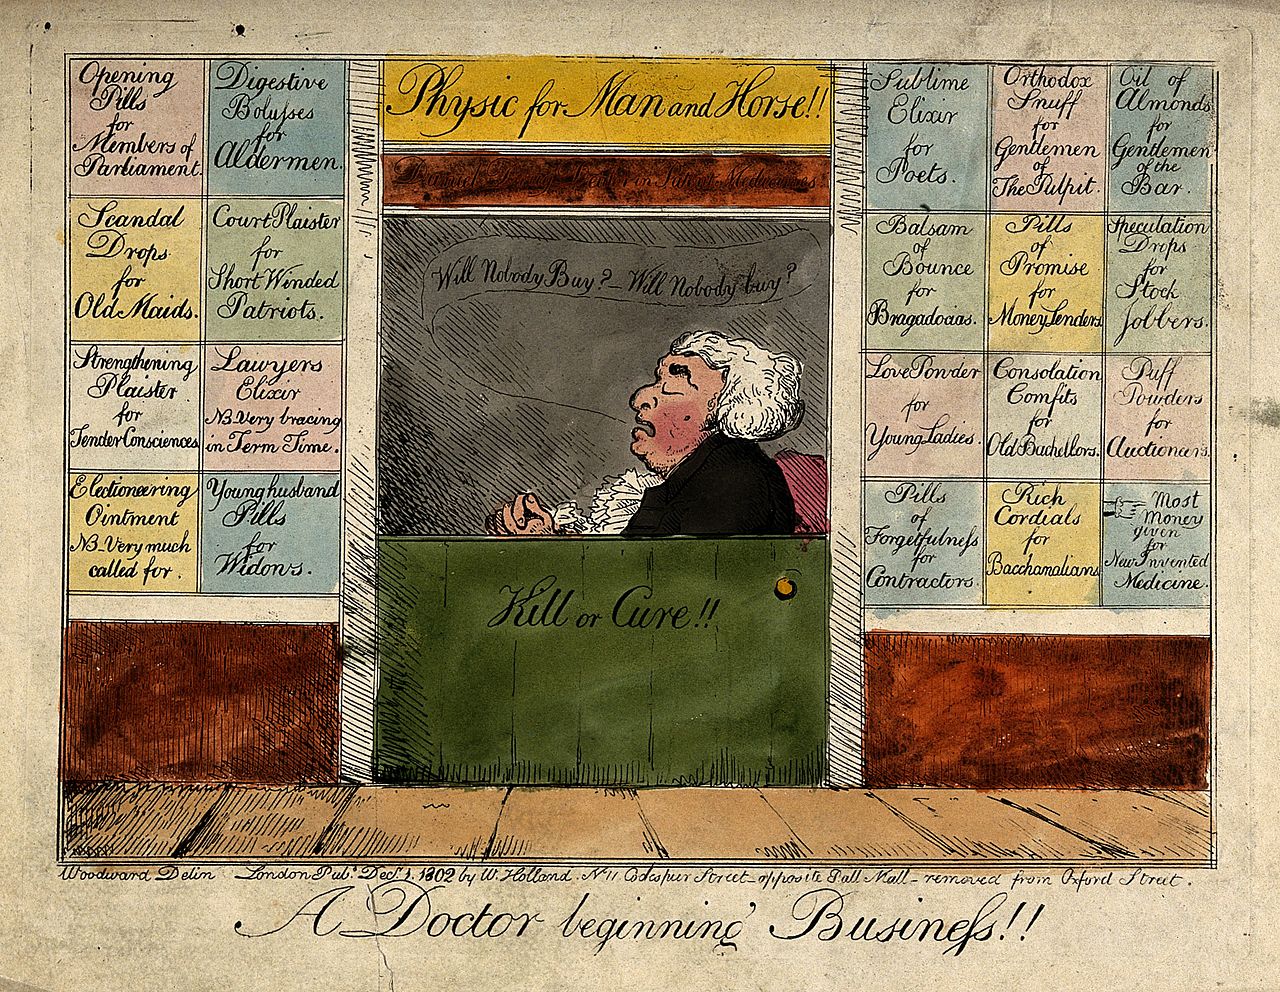 Opening
Pills
for
Members of
Parliament.
Digestive
Boluſses
for
Aldermen.
Scandal
Drops
for
Old Maids.
Court Plaister
for
Short Winded
Patriots.
Strengthening
Plaister
for
Tender Consciences
Lawyers
Elixir
NB Very bracing
in Term Time.
Electioneering
Ointment
NB Very much
called for.
Young husband
Pills
for
Widows.
Physic for Man and Horse!!
in
Will Nobody Buy? Will Nobody buy?
Kill or Cure!!
Sublime
Elixir
for
Poets.
Orthodox
Snuff
for
Gentlemen
of
The Pulpit.
Oil of
Almonds
for
Gentlemen
of the
Bar.
Balsam
of
Bounce
for
Bragadoaas.
Pills
of
Promise
for
Money Lenders
Speculation
Drops
for
Stock
Jobbers.
Love Powder
for
Young Ladies.
Consolation
Comfits
for
Old Bachellors.
Puff
Powders
for
Auctioneers.
Pills
of
Forgetfulneſs
for
Contractors.
Rich
Cordials
for
Bacchanalians
Most
Money
given
for
New Invented
Medicine.
Woodward Delin London Pubd. Decr. 1. 1802 by W. Holland. No. 11 Cockspur Street opposite Pall Mall - removed from Oxford Street.
A Doctor beginning Busineſs!!